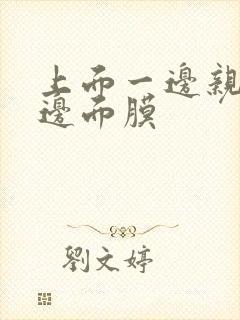 上而一邊親
邊而膜
劉文婷